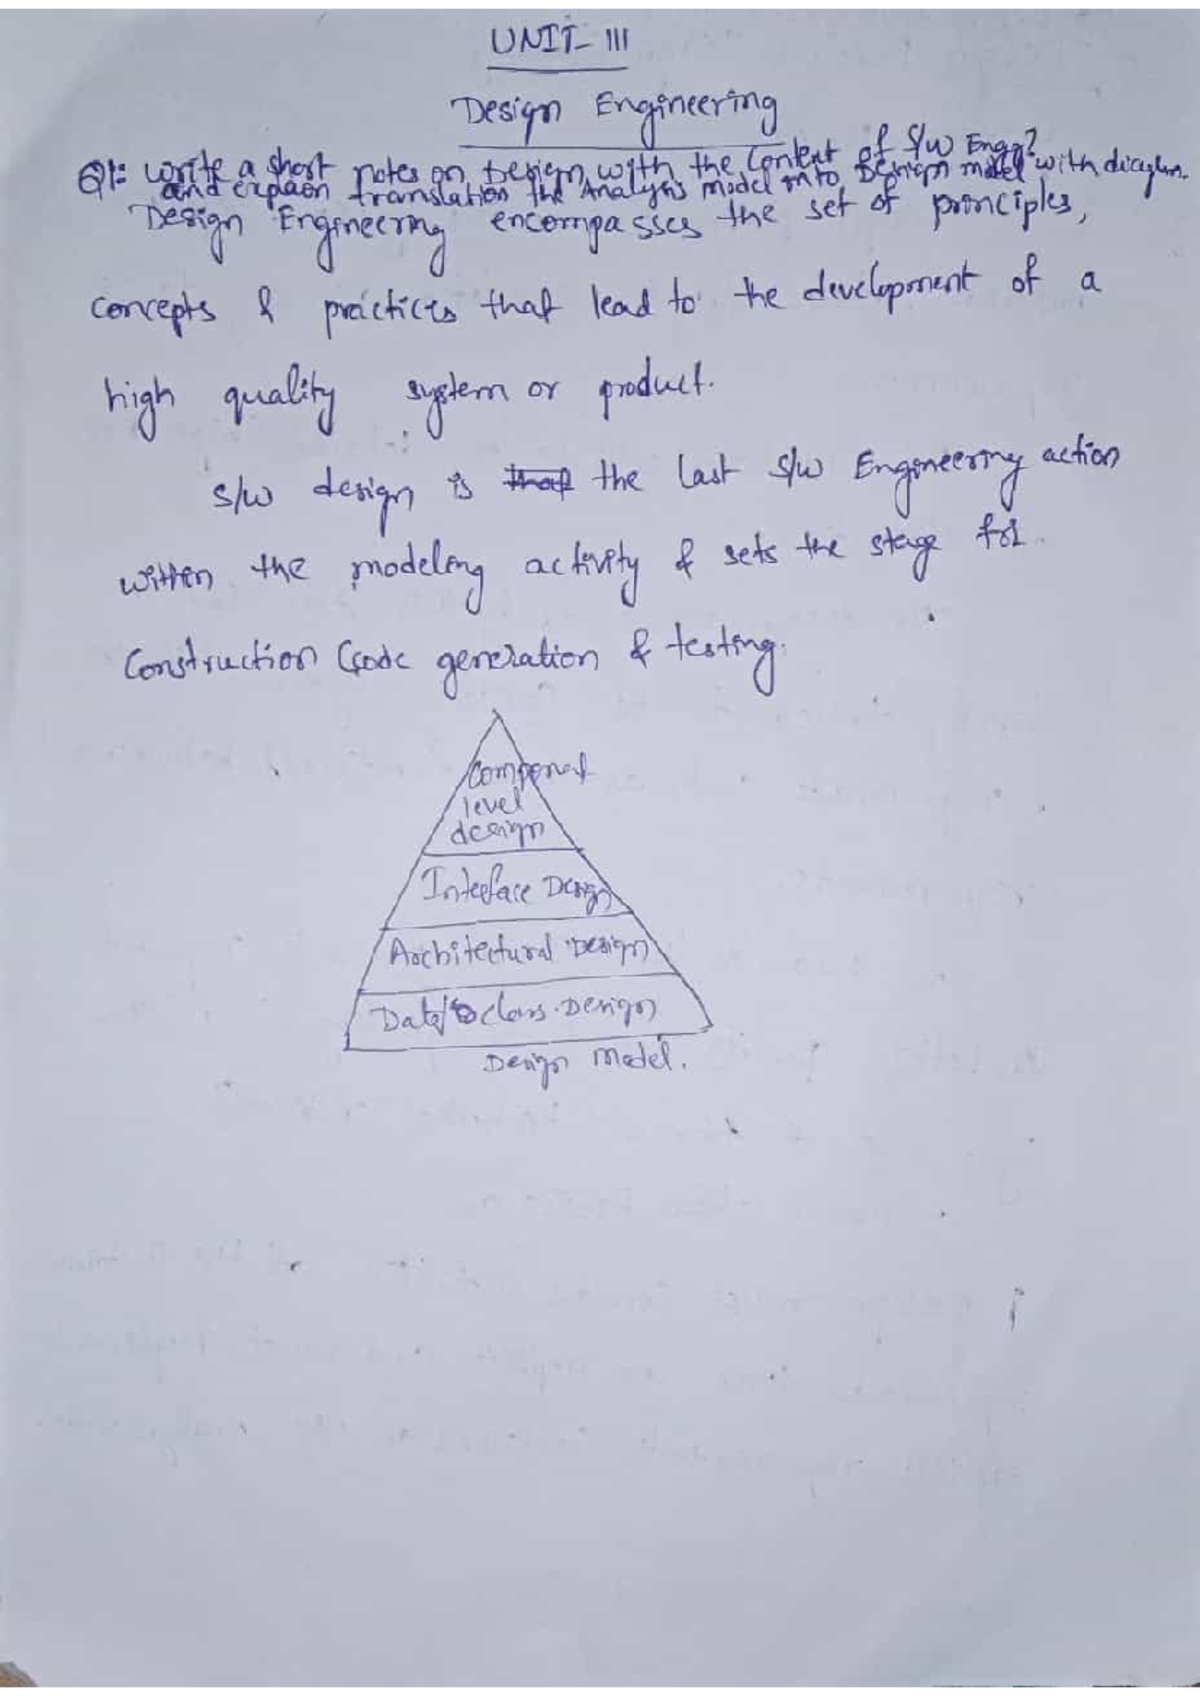 UNIT- III
Design Engineering
Q1: write a short notes on Design with the Context of S/w Engg?
and explain translation the Analysis model into Design model with diagram.
Design Engineering encompasses the set of principles,
concepts & practices that lead to the development of a
high quality system or product.
s/w design is that the last s/w Engineering action
within the modeling activity & sets the stage for
Construction (code generation & testing.
Component
level
design
Interface Design
Architectural Design
Data/ class Design
Design model.